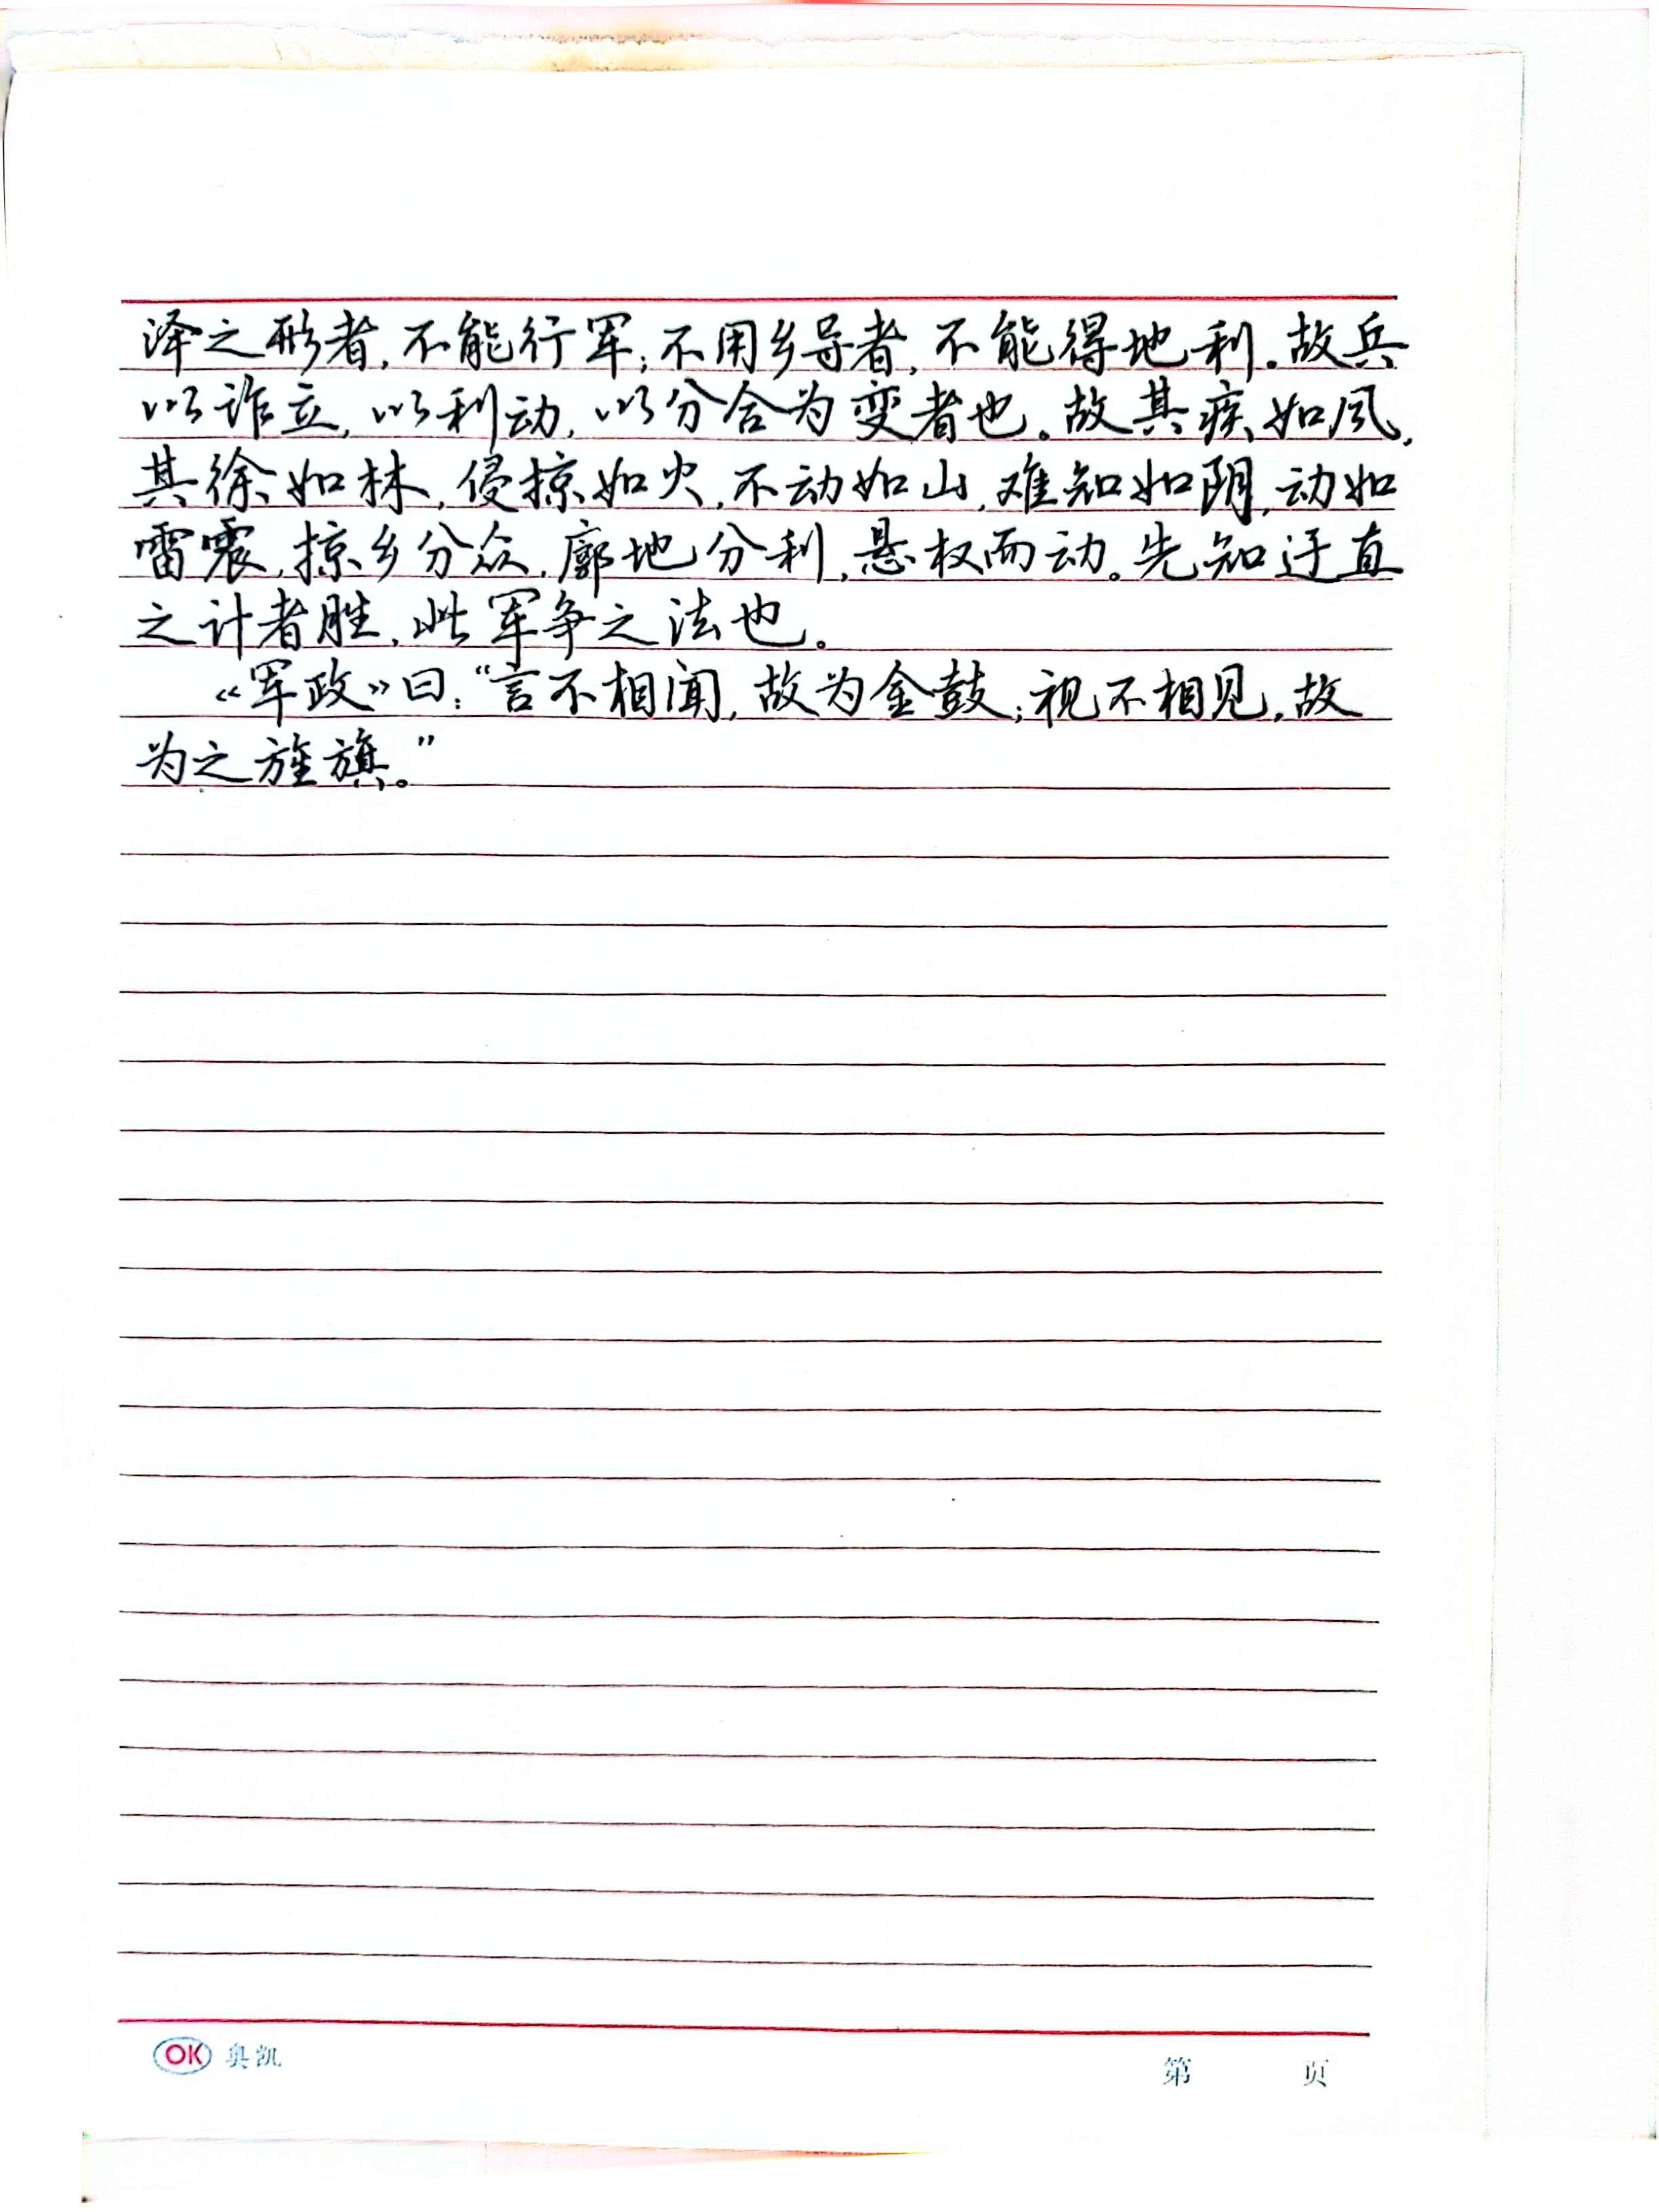 泽之形者,不能行军;不用乡导者,不能得地利。故兵
以诈立,以利动,以分合为变者也。故其疾如风,
其徐如林,侵掠如火,不动如山,难知如阴,动如
雷震,掠乡分众,廓地分利,悬权而动。先知迂直
之计者胜,此军争之法也。
《军政》曰:“言不相闻,故为金鼓;视不相见,故
为之旌旗。”
OK 奥凯
第 页